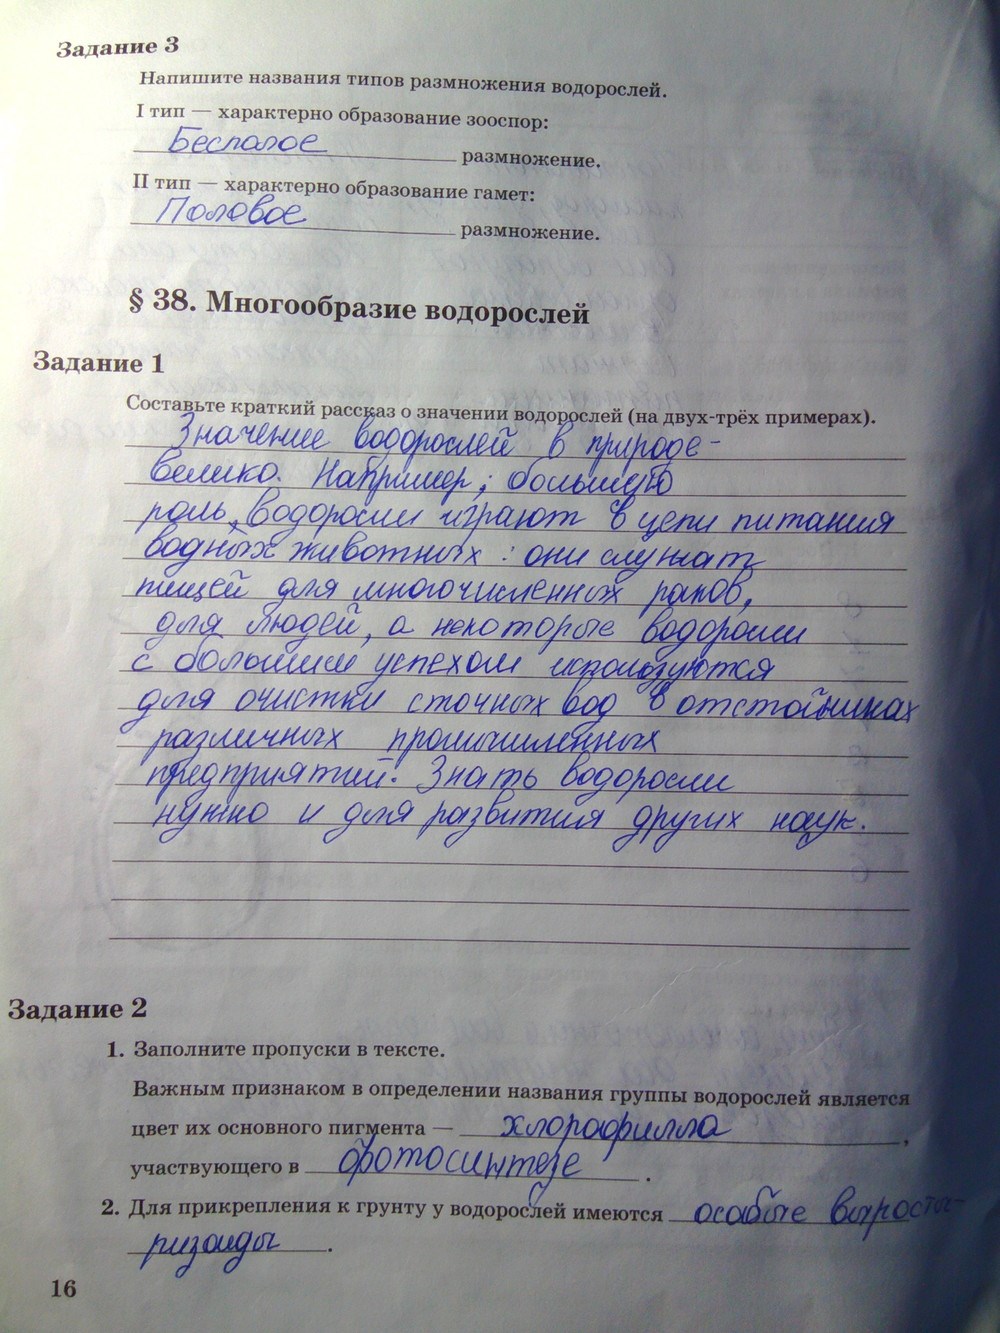 Задание 3
Напишите названия типов размножения водорослей.
I тип — характерно образование зооспор:
Бесполое размножение.
II тип — характерно образование гамет:
Половое размножение.
§ 38. Многообразие водорослей
Задание 1
Составьте краткий рассказ о значении водорослей (на двух-трёх примерах).
Значение водорослей в природе -
велико. Например, большую
роль водоросли играют в цепи питания
водных животных: они служат
пищей для многочисленных раков,
для людей, а некоторые водоросли
с большим успехом используются
для очистки сточных вод в отстойниках
различных промышленных
предприятий. Знать водоросли
нужно и для развития других наук.
Задание 2
1. Заполните пропуски в тексте.
Важным признаком в определении названия группы водорослей является
цвет их основного пигмента — хлорофилла,
участвующего в фотосинтезе.
2. Для прикрепления к грунту у водорослей имеются особые выросты-
ризоиды.
16